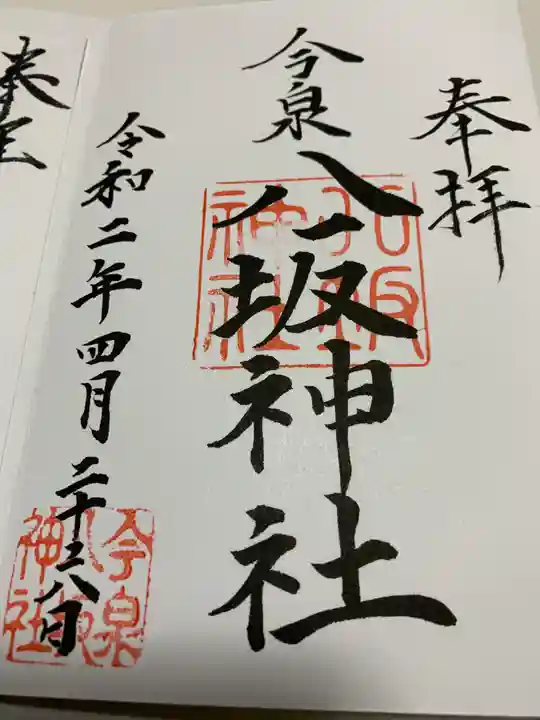 奉拝
今泉
八坂神社
八坂神社
令和二年四月二十六日
今泉八坂神社